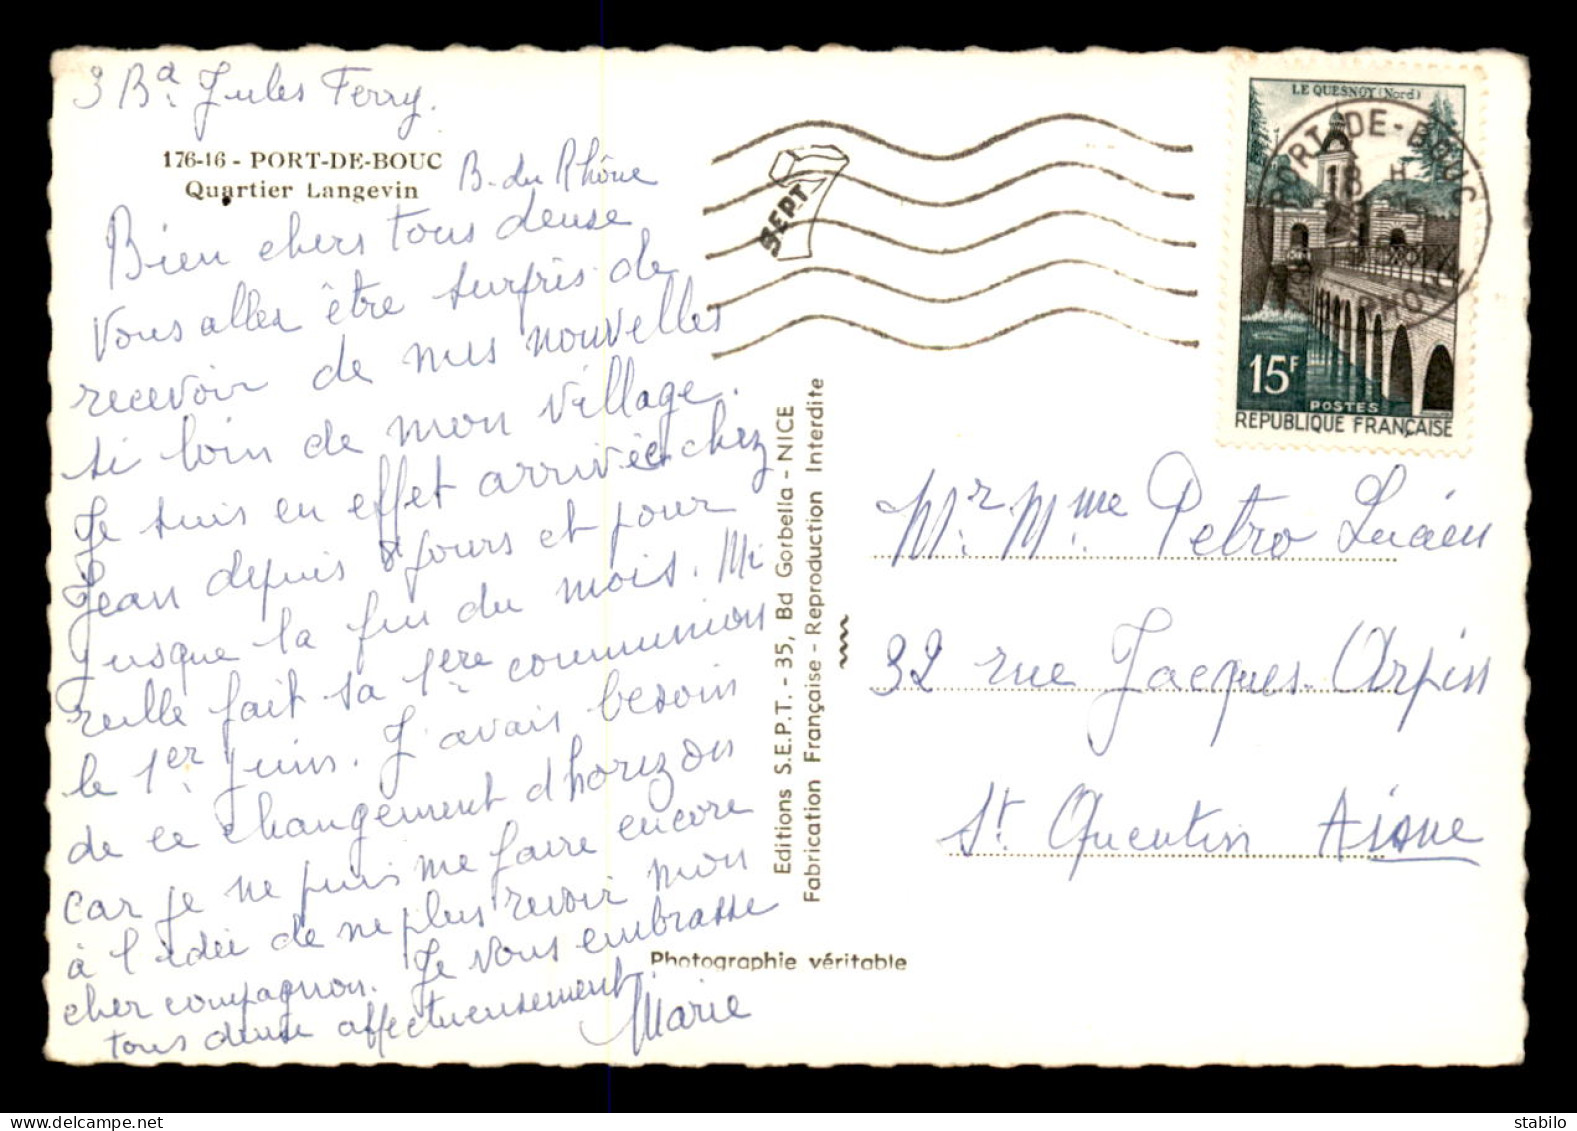 3 Bd. Jules Ferry.
176-16 - PORT-DE-BOUC
Quartier Langevin
B. du Rhône
Bien chers tous deuse
Vous allez être surpris de
recevoir de mes nouvelles
si loin de mon village.
Je suis en effet arrivée chez
Jean depuis 8 jours et pour
jusque la fin du mois. Mi
reille fait sa 1ère communion
le 1er juin. J'avais besoin
de ce changement d'horizon
car je ne puis me faire encore
à l'idée de ne plus revoir mon
cher compagnon. Je vous embrasse
tous deuse affectueusement.
Marie
Editions S.E.P.T. - 35, Bd Gorbella - NICE
Fabrication Française - Reproduction Interdite
Photographie véritable
SEPT
LE QUESNOY (Nord)
15F
POSTES
REPUBLIQUE FRANÇAISE
PORT-DE-BOUC
18 H
RHONE
Mr. Mme. Petro Lucien
32 rue Jacques Arpin
St Quentin Aisne
stabilo 🏛 delcampe.net